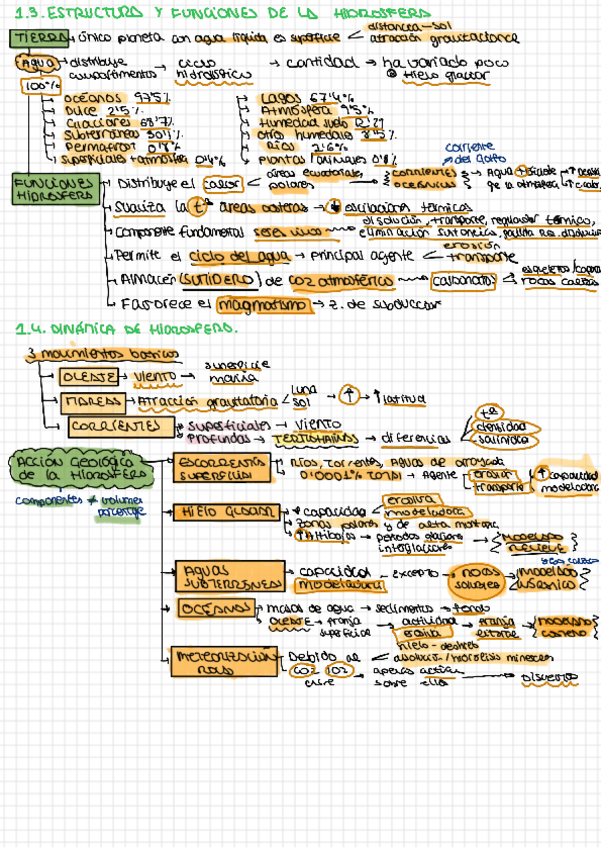 1.3. ESTRUCTURA Y FUNCIONES DE LA HIDROSFERA
TIERRA → único planeta con agua líquida es superficie < distancia-sol
atracción gravitacional
AGUA → distribuye compartimentos → ciclo hidrológico → cantidad → ha variado poco
Hielo glaciar
100%
OCÉANOS 97'5%
DULCE 2'5%
GLACIARES 68'7%
SUBTERRÁNEAS 30'1%
PERMAFROST 0'8%
superficiales + atmósfera 0'4%
LAGOS 67'4%
ATMÓSFERA 9'5%
HUMEDAD SUELO 12'2%
otros humedales 8'5%
RÍOS 1'6%
plantas / animales 0'8%
FUNCIONES HIDROSFERA
Distribuye el calor < áreas ecuatoriales
polares
corrientes oceánicas → Agua
corriente del golfo
Suaviza la tª áreas costeras → oscilación térmicas
Componente fundamental seres vivos
disolución, transporte, regulador térmico,
eliminación sustancias
Permite el ciclo del agua → principal agente < erosión
transporte
Almacén (SUMIDERO) de CO2 atmosférico → carbonatos
rocas calizas
Favorece el magmatismo → z. de subducción
1.4. DINÁMICA DE HIDROSFERA.
3 movimientos básicos
OLEAJE → viento → superficie marina
MAREAS → Atracción gravitatoria < luna
sol
→ ↑ → ↑ latitud
CORRIENTES
superficiales → viento
profundas → TERMOHALINAS → diferencias
tª
densidad
salinidad
ACCIÓN GEOLÓGICA DE LA HIDROSFERA
componentes ≠ volumen
porcentaje
ESCORRENTÍA SUPERFICIAL
Ríos, torrentes, Aguas de arroyada
0'0001% TOTAL → Agente
erosión
transporte
↑ capacidad modeladora
HIELO GLACIAR
capacidad
erosiva
modeladora
zonas polares y de alta montaña
periodos glaciares
interglaciares
MODELADO
RELIEVE
AGUAS SUBTERRÁNEAS → capacidad modeladora → excepto → rocas solubles → modelado kárstico
OCÉANOS
masas de agua → sedimentos → fondo
OLEAJE → franja superficie → actividad erosiva → franja litoral → modelado costero
METEORIZACIÓN ROCAS
Debido al
hielo-deshielo
disolución / hidrólisis minerales
CO2 / O2
aguas actúan sobre ella → disuelto